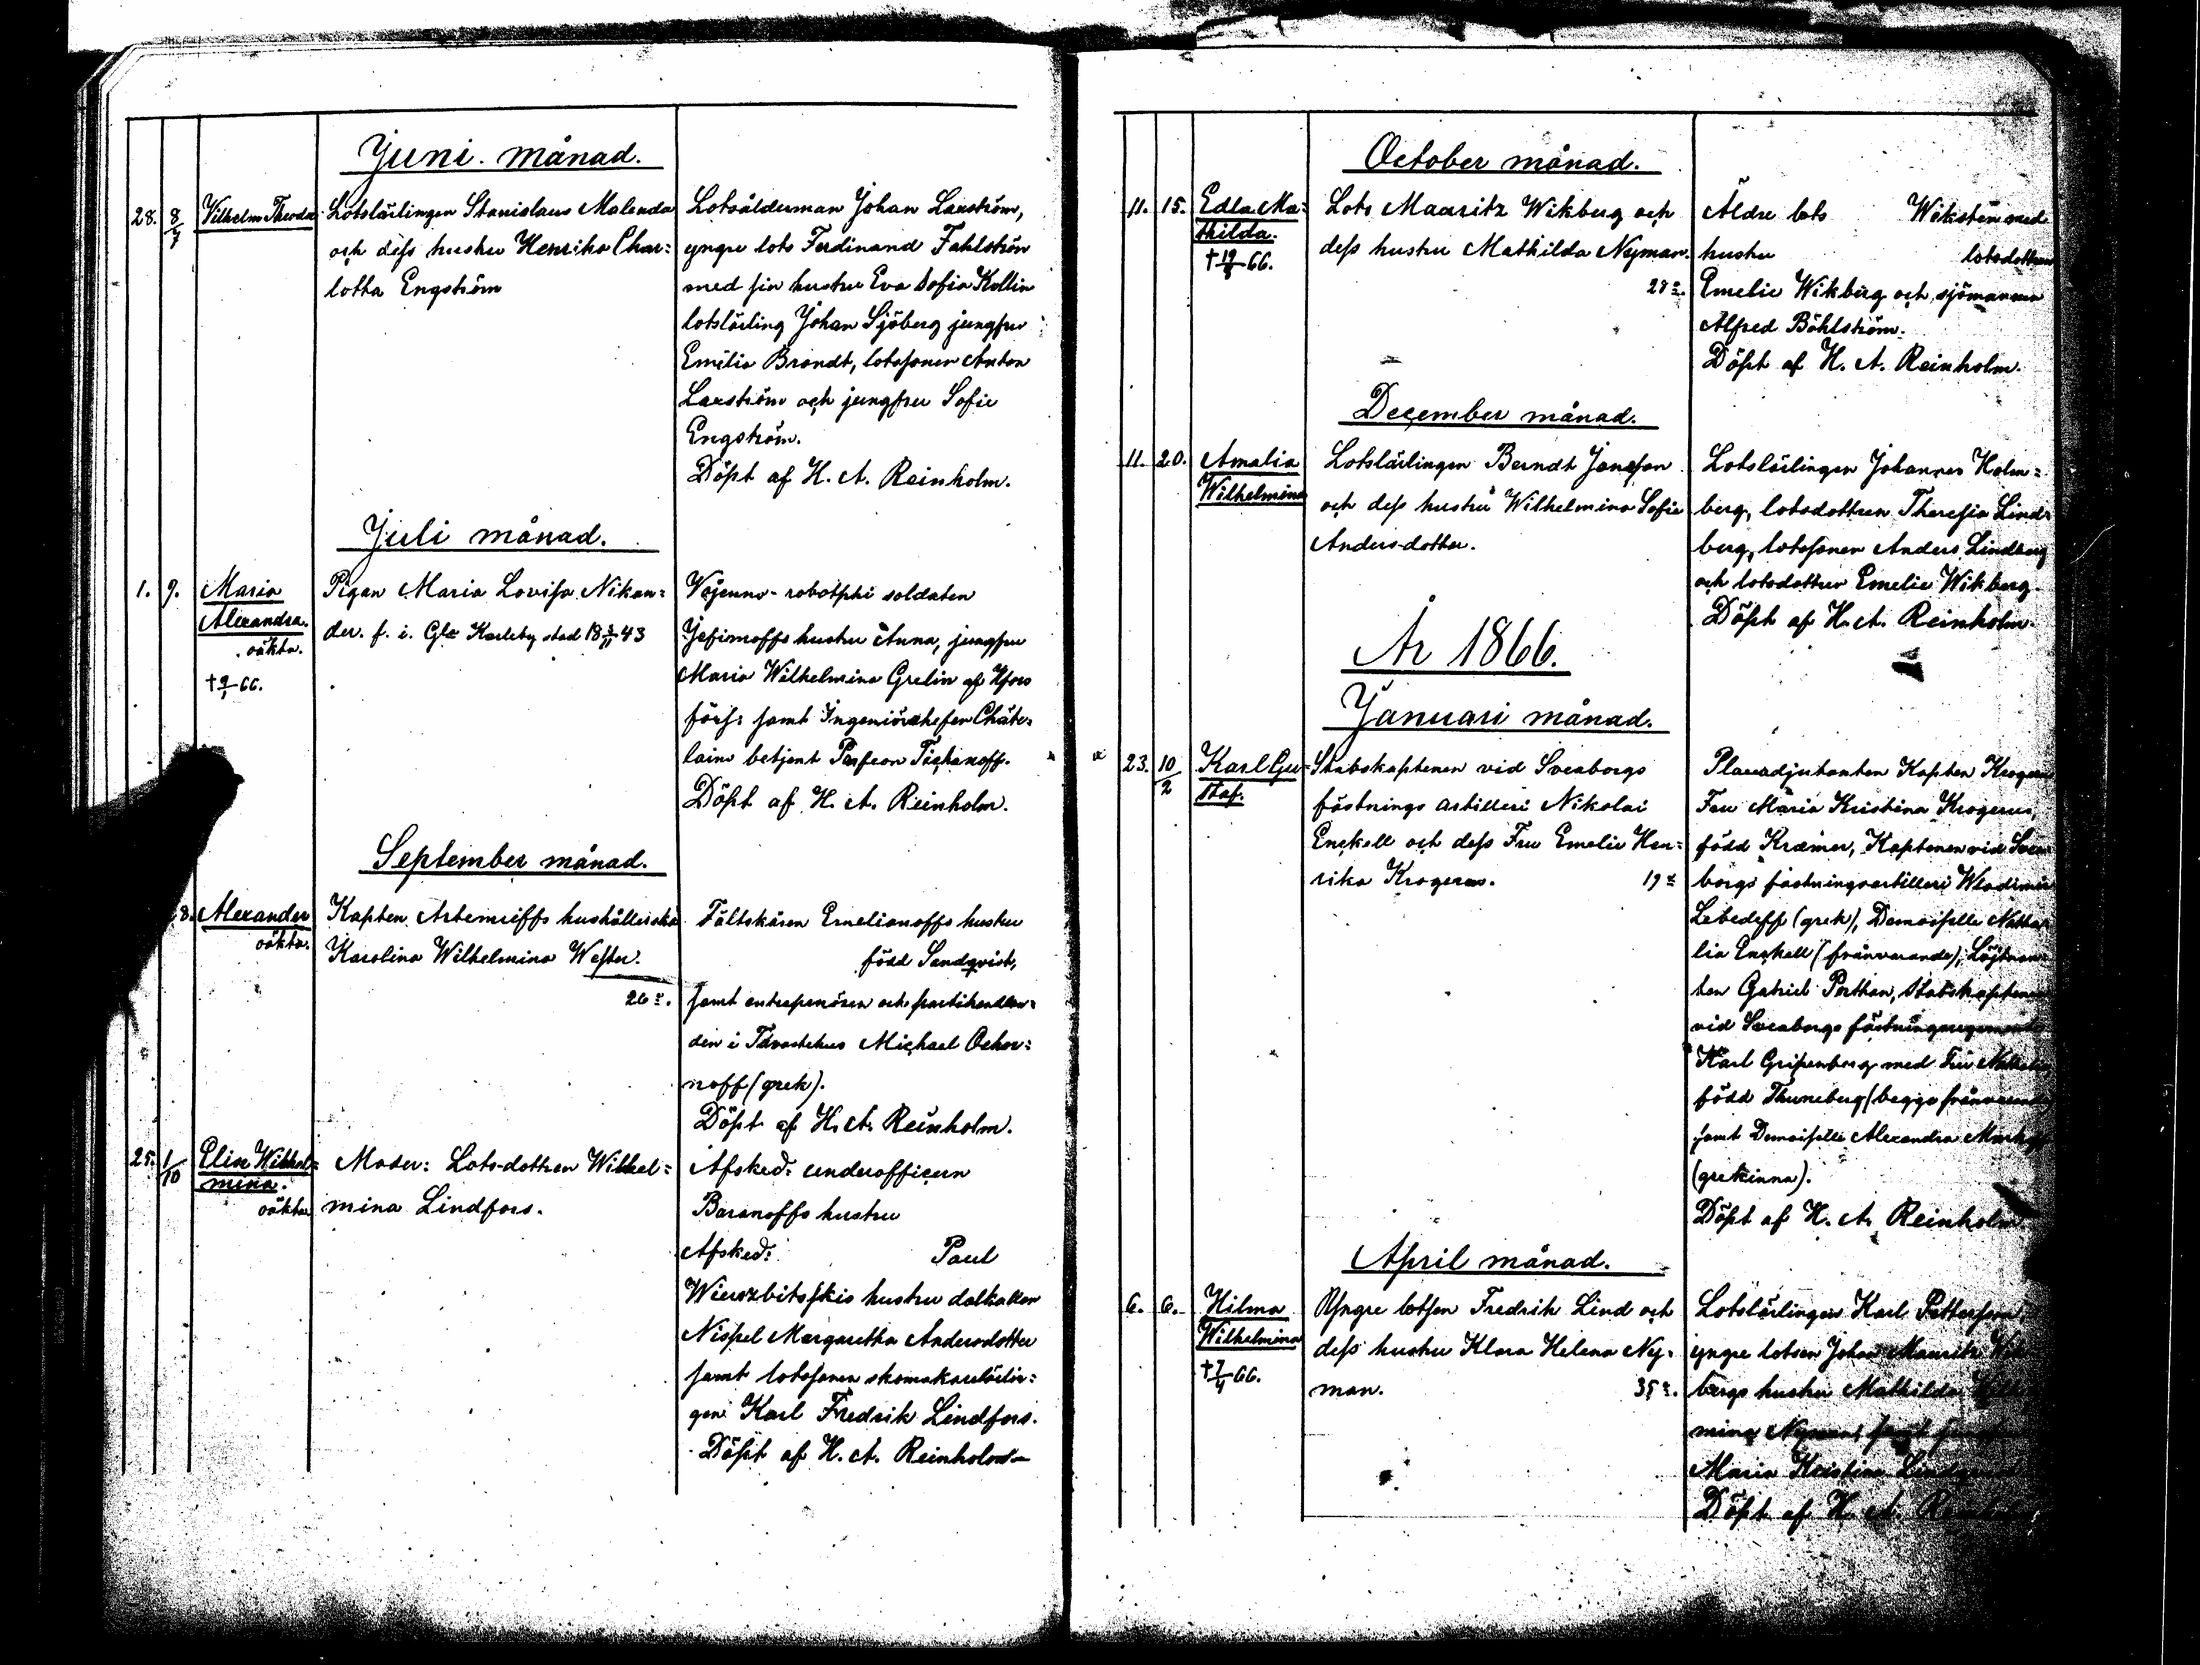 Juni månad.
28. 8/7 Vilhelm Theodor
Lotslärlingen Stanislaus Malenda
och dess hustru Henrika Char=
lotta Engström
Lotsålderman Johan Laxström,
yngre lots Ferdinand Fahlström
med sin hustru Eva Sofia Kollin
lotslärling Johan Sjöberg jungfru
Emilia Brandt, lotssonen Anton
Laxström och jungfru Sofie
Engström.
Döpt af H. A. Reinholm.
Juli månad.
1. 9. Maria
Alexandra.
oäkta.
† 9/7 66.
Pigan Maria Lovisa Nikan=
der. f. i. Gla Karleby stad 18 3/11 43
Vojenno-robotschi soldaten
Jefimoffs hustru Anna, jungfru
Maria Wilhelmina Grelin af Hfors
förs: samt Ingeniörchefen Châte=
lains betjent Parfeon Tichanoff.
Döpt af H. A. Reinholm.
September månad.
8. Alexander
oäkta.
Kapten Artemieffs hushållerska
Karolina Wilhelmina Wester.
26 r.
Fältskären Emelianoffs hustru
född Sandqvist,
samt entreprenören och partihandlan=
den i Tavastehus Michael Ochor=
noff (grek).
Döpt af H. A. Reinholm.
25. 1/10 Elin Wilhel=
mina.
oäkta
Moder: Lots-dottren Wilhel=
mina Lindfors.
Afsked: underofficern
Baranoffs hustru
Afsked: Paul
Wierzbitskis hustru dalkullan
Nispel Margaretha Andersdotter
samt lotssonen skomakarelärlin=
gen Karl Fredrik Lindfors.
Döpt af H. A. Reinholm
October månad.
11. 15. Edla Ma=
thilda.
† 19/8 66.
Lots Mauritz Wikberg och
dess hustru Mathilda Nyman.
28 r.
Äldre lots Wiksten med
hustru lotsdottren
Emelie Wikberg och sjömannen
Alfred Böhlström.
Döpt af H. A. Reinholm.
December månad.
11. 20. Amalia
Wilhelmina
Lotslärlingen Berndt Jansson
och dess hustru Wilhelmina Sofie
Anders-dotter.
Lotslärlingen Johannes Holm=
berg, lotsdottren Theresia Lind=
berg, lotssonen Anders Lindberg
och lotsdottren Emelie Wikberg.
Döpt af H. A. Reinholm.
År 1866.
Januari månad.
23. 10/2 Karl Gu=
staf.
Stabskaptenen vid Sveaborgs
fästnings artilleri Nikolai
Enckell och dess Fru Emelie Hen=
rika Krogerus.
19 r
Placeadjutanten Kapten Krogerus
Fru Maria Kristina Krogerus,
född Kræmer, Kaptenen vid Svea
borgs fästningsartilleri Wladimir
Lebedeff (grek), Demoiselle Natha
lia Enckell (frånvarande), Löjtnan
ten Gabriel Porthan, stabskaptenen
vid Sveaborgs fästningsregemente
Karl Gripenberg med Fru
född Thuneberg (begge frånvarande)
samt Demoiselle Alexandra
(grekinna).
Döpt af H. A. Reinholm
April månad.
6. 6. Hilma
Wilhelmina
† 7/4 66.
Yngre lotsen Fredrik Lind och
dess hustru Klara Helena Ny=
man. 35 r.
Lotslärlingen Karl Pettersson,
yngre lotsen Johan Mauritz Wik
bergs hustru Mathilda Wilhel
mina Nyman, samt
Maria Kristina
Döpt af H. A.